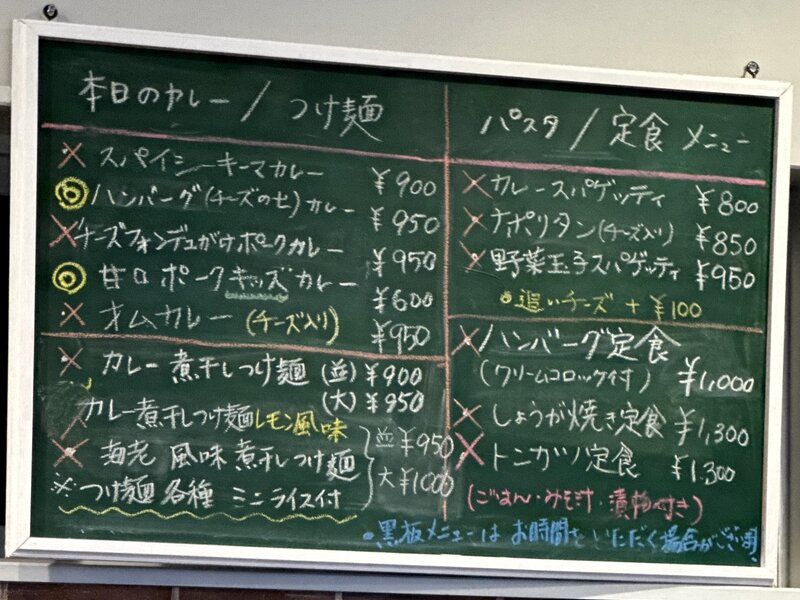 本日のカレー / つけ麺
× スパイシーキーマカレー ¥900
◎ ハンバーグ(チーズのせ)カレー ¥950
× チーズフォンデュがけポークカレー ¥950
◎ 甘口ポークキッズカレー ¥600
× オムカレー (チーズ入り) ¥950
× カレー煮干しつけ麺 (並) ¥900
(大) ¥950
カレー煮干しつけ麺レモン風味
並 ¥950
× 海老風味煮干しつけ麺
大 ¥1000
※つけ麺各種 ミニライス付
パスタ / 定食 メニュー
× カレースパゲッティ ¥800
× ナポリタン(チーズ入り) ¥850
× 野菜玉子スパゲッティ ¥950
追いチーズ + ¥100
× ハンバーグ定食
(クリームコロッケ付) ¥1,000
× しょうが焼き定食 ¥1,300
× トンカツ定食 ¥1,300
(ごはん・みそ汁・漬物付き)
黒板メニューは お時間を いただく場合がござい